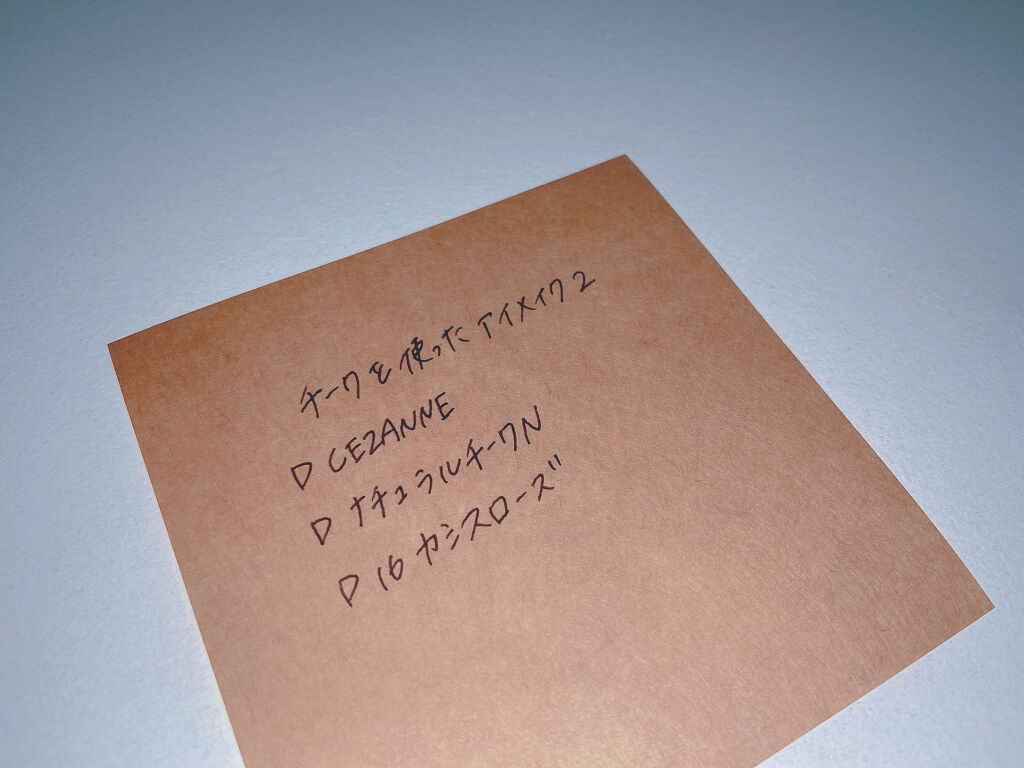 チークを使ったアイメイク2
▷ CEZANNE
▷ ナチュラルチークN
▷ 16 カシスローズ